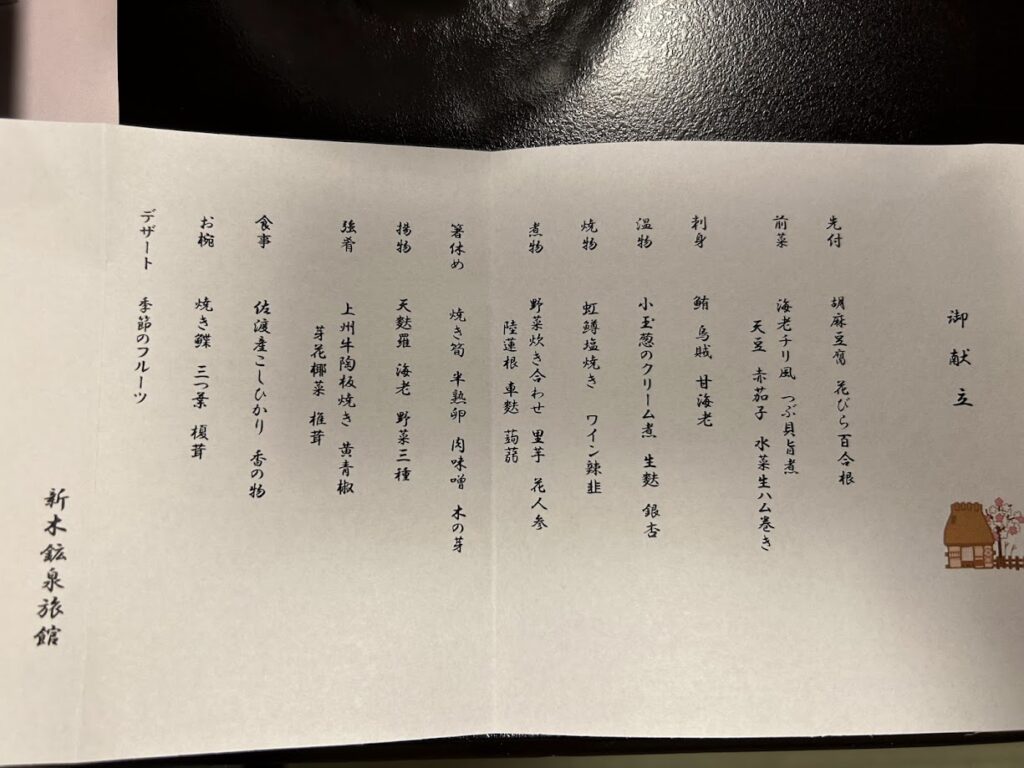 御献立
先付 胡麻豆腐 花びら百合根
前菜 海老チリ風 つぶ貝旨煮
天豆 赤茄子 水菜生ハム巻き
刺身 鮪 烏賊 甘海老
温物 小玉葱のクリーム煮 生麩 銀杏
焼物 虹鱒塩焼き ワイン辣韮
煮物 野菜炊き合わせ 里芋 花人参
陸蓮根 車麩 蒟蒻
箸休め 焼き筍 半熟卵 肉味噌 木の芽
揚物 天麩羅 海老 野菜三種
強肴 上州牛陶板焼き 黄青椒
芽花椰菜 椎茸
食事 佐渡産こしひかり 香の物
お椀 焼き鰈 三つ葉 榎茸
デザート 季節のフルーツ
新木鉱泉旅館